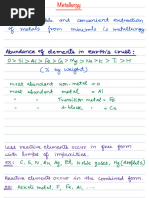 Metallurgy
and convenient extraction
of metals from minerals is metallurgy
Abundance of elements in earth's crust:
O > Si > Al > Fe > Ca > Mg > Na > K > Ti > H
(% by weight)
Most abundant non-metal = O
Most abundant metal = Al
" " Transition metal = Fe
" " d-block " = Fe
Less reactive elements occur in free form
with lumps of impurities.
Ex: C, S, N, Au, Ag, Pt, Noble gases, Hg (droplets)
Reactive elements occur in the combined form.
Ex: Alkali metal, F, Fe, Al, ....